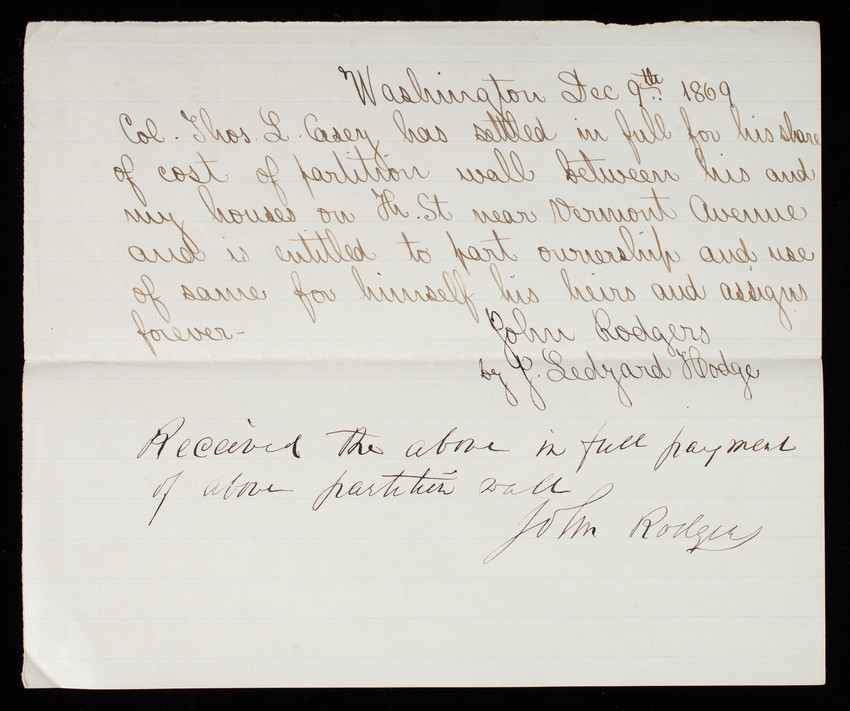 Washington Dec 9th. 1869
Col. Thos. L. Casey has settled in full for his share
of cost of partition wall between his and
my houses on St near Vermont Avenue
and is entitled to part ownership and use
of same for himself his heirs and assigns
forever-
John Rodgers
by J. Ledyard Hodge
Received the above in full payment
of above partition wall
John Rodgers